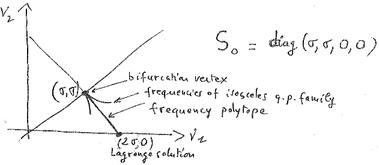 ν₂
S₀ = diag (σ, σ, 0, 0)
bifurcation vertex
(σ,σ)
frequencies of isosceles q.p. family
frequency polytope
(2σ,0)
ν₁
Lagrange solution